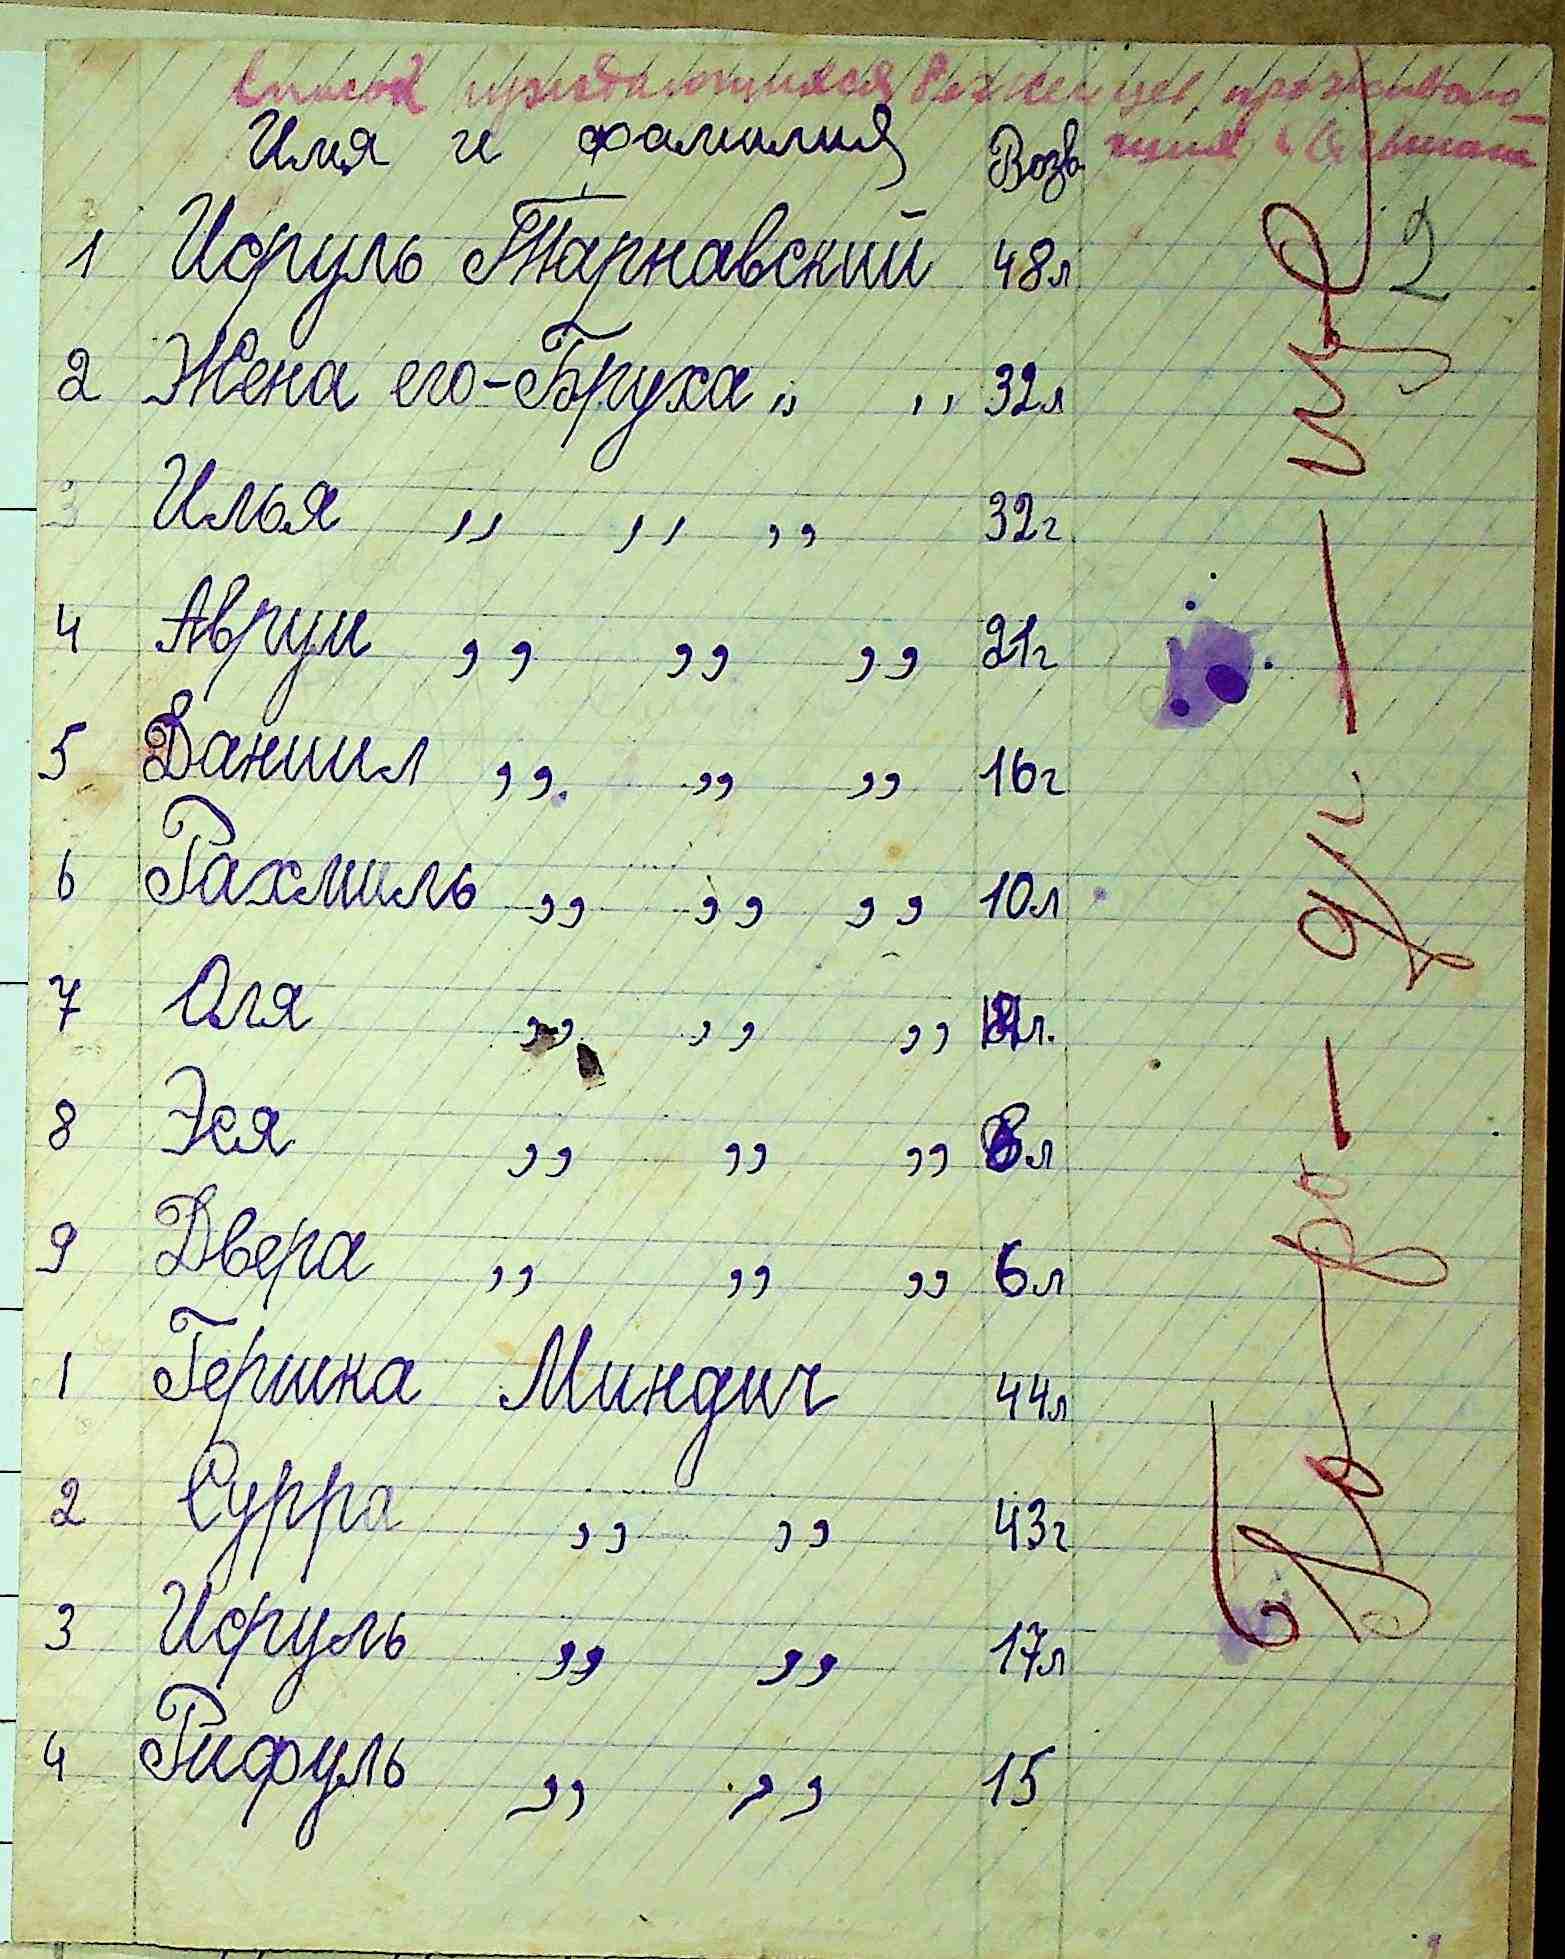 Список нуждающихся беженцев, проживаю-
щих в
Имя и фамилия Возр
2
1 Исруль Тарнавский 48л
2 Жена его-Бруха „ „ 32л
3 Илья „ „ „ 32г
4 Аврум „ „ „ 21г
5 Даниил „ „ „ 16г
6 Рахмиль „ „ „ 10л
7 Оля „ „ „ л.
8 Эся „ „ „ л
9 Двера „ „ „ 6л
1 Гершка Миндич 44л
2 Сурра „ „ 43г
3 Исруль „ „ 17л
4 Рифуль „ „ 15